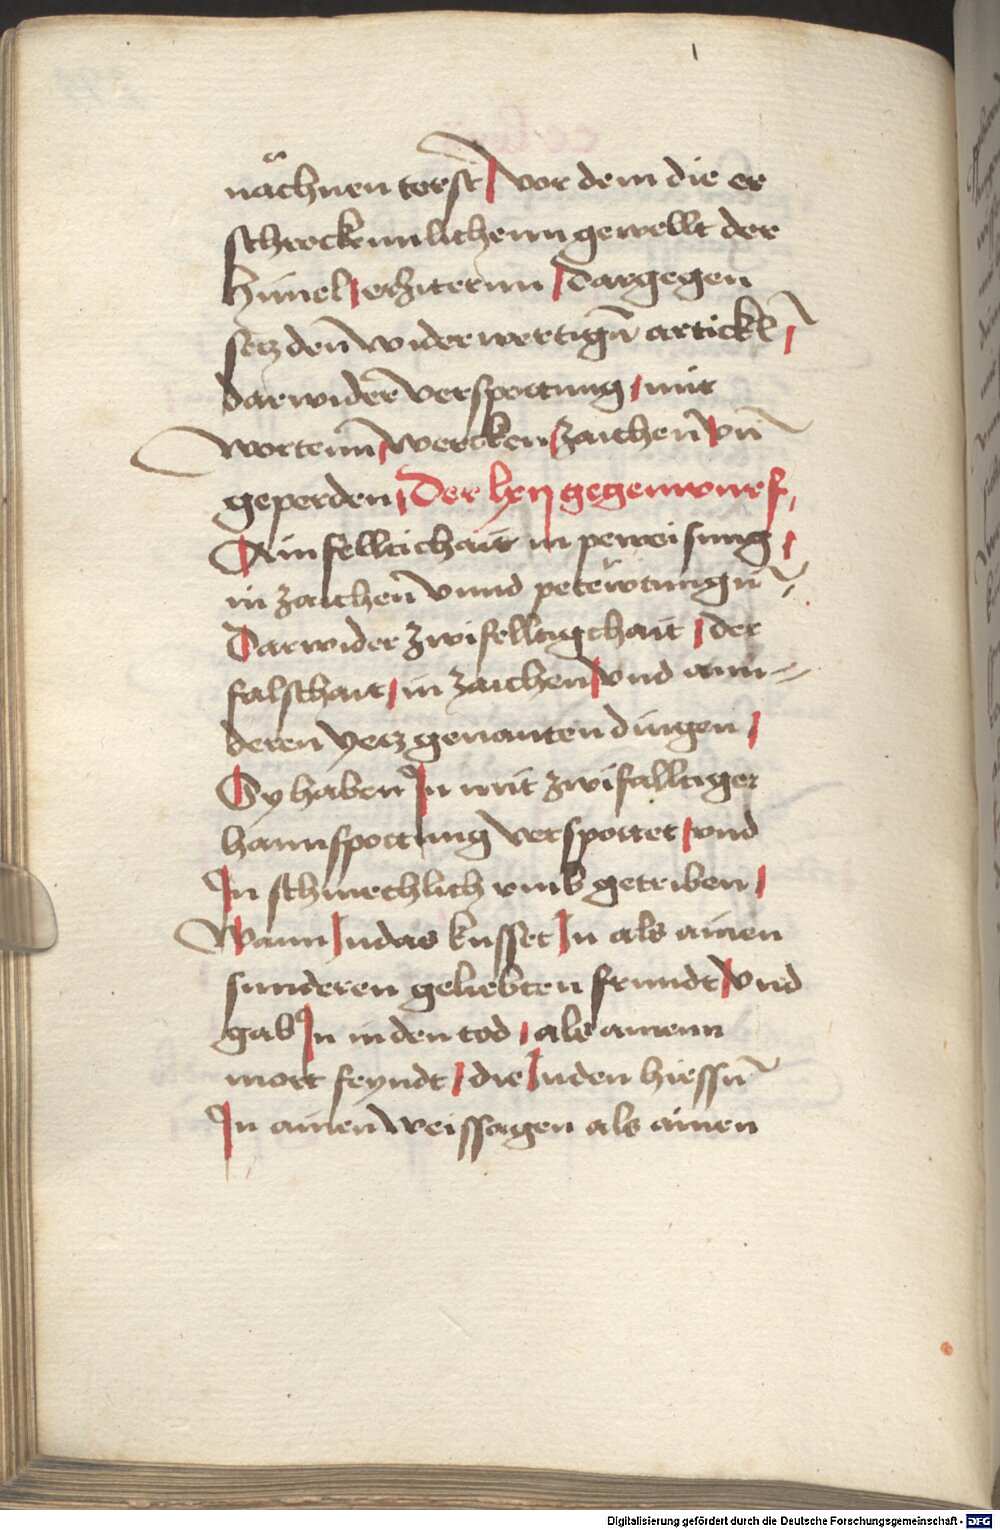 nächnen torst vor dem die er
schrockennlichenn gewellt der
himel erziternn dargegen
setz den̄ widerwertign̄ artickl
dar wider verspottung mit
wortenn wercken zaichen̄ vn̄
geperden Der lxij gegenwurf
Ainfelltichait in peweisung
in zaichen̄ vnnd petëwtungn̄
Darwider zwifelltigchait der
falschait in zaichen̄ vnd ann=
deren yetz genanten dingen
Sy haben In mit zwifalltiger
hannspottung verspottet vnd
In schmechlich vmb getriben
Wann Iudas kusset In als ainen
sunderen geliebten frundt vnd
gab In in den tod als ainenn
mort feyndt die Iuden hiessn̄
In ainen weissagen als ainen
Digitalisierung gefördert durch die Deutsche Forschungsgemeinschaft - DFG